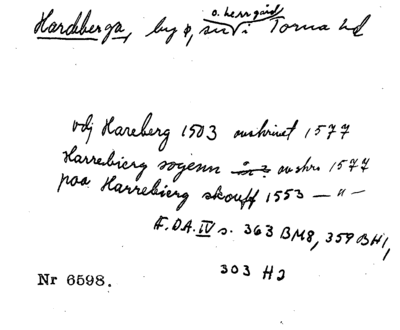 o. herrgård
Hardeberga, by o, sn i Torna hd
vdj Hareberg 1503 avskrivet 1577
Harrebierg sogenn avskr. 1577
paa Harrebierg skouff 1553 — " —
F.DA.IV s. 363 BM8, 359 BH1,
303 H2
Nr 6598.